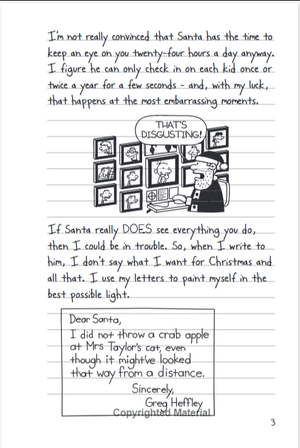 I'm not really convinced that Santa has the time to
keep an eye on you twenty-four hours a day anyway.
I figure he can only check in on each kid once or
twice a year for a few seconds - and, with my luck,
that happens at the most embarrassing moments.
THAT'S
DISGUSTING!
If Santa really DOES see everything you do,
then I could be in trouble. So, when I write to
him, I don't say what I want for Christmas and
all that. I use my letters to paint myself in the
best possible light.
Dear Santa,
I did not throw a crab apple
at Mrs Taylor's cat, even
though it might've looked
that way from a distance.
Sincerely,
Greg Heffley
Copyrighted Material
3